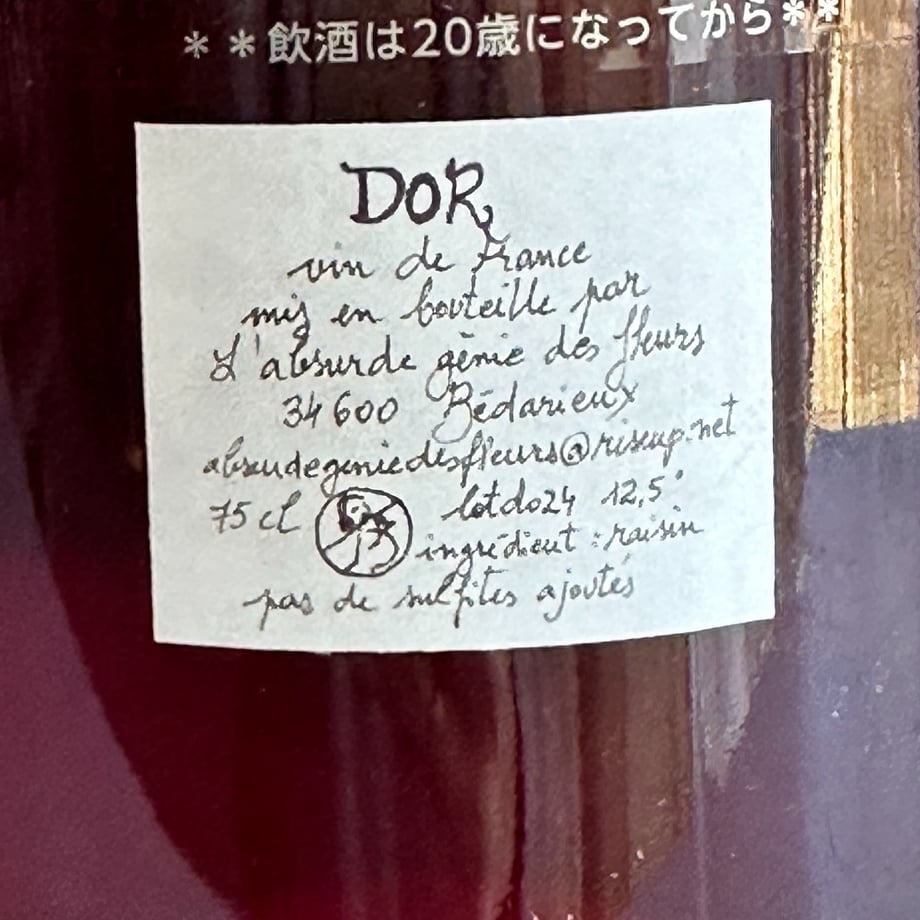 ＊＊飲酒は20歳になってから＊＊
DOR
vin de France
mis en bouteille par
L'absurde génie des fleurs
34600 Bédarieux
absurdegeniedesfleurs@riseup.net
75 cl lotdo24 12,5°
ingrédient : raisin
pas de sulfites ajoutés